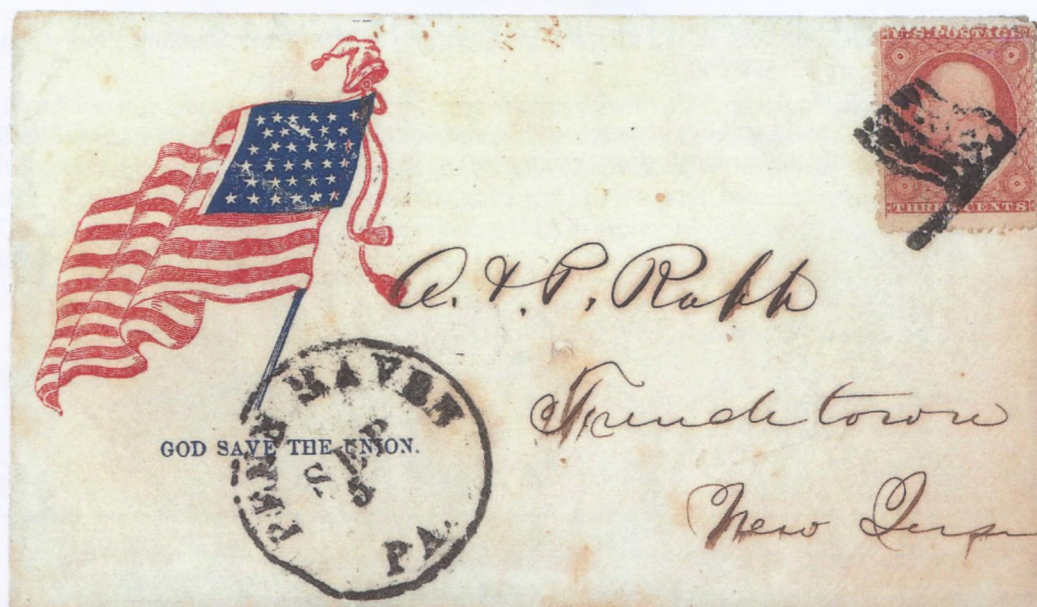 U.S. POSTAGE
THREE CENTS
A. & P. Rapp
Frenchtown
New Jersey
GOD SAVE THE UNION.
PENN HAVEN
SEP
PA.